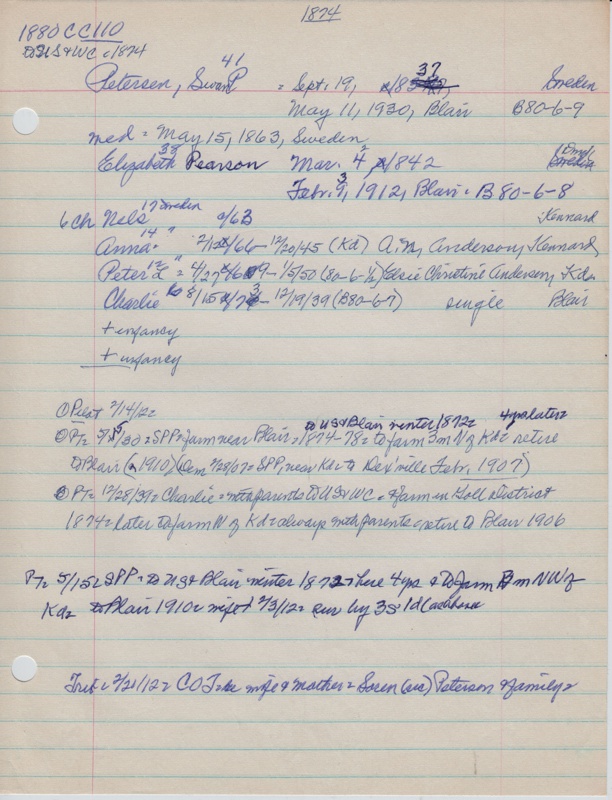 1874
1880 CC 110
to US & WC = 1874
41
37
Petersen, Swan P = Sept. 19, 18 Sweden
May 11, 1930, Blair B80-6-9
med = May 15, 1863, Sweden
38 2
Elizabeth Pearson Mar. 4 1842 Sweden
3
Febr. 9, 1912, Blair = B80-6-8
6 ch Nels 17 Sweden /63 Kennard
Anna = 14 " /66 - 12/20/45 (Kd) A.N. Anderson, Kennard
Peter L 12 " = 4/27/69 - 1/5/50 (80-6-½) Elsie Christine Anderson, Kd =
Charlie 8/15/73 - 12/19/39 (B80-6-7) single Blair
+ infancy
+ infancy
① Pilot 2/14/12 = to US & Blair winter 1872 = 4 yrs later =
② PT = 5/15/30 = SPP = farm near Blair = 1874-78 = to farm 3m N of Kd = retire
to Blair ( 1910) (Dem 2/28/07 = SPP, near Kd = to Dex'ville Febr. 1907)
③ PT = 12/28/39 = Charlie = with parents to US & WC = farm in Goll District
1874 = later to farm N of Kd = always with parents = retire to Blair 1906
PT = 5/15 = SPP = to US & Blair winter 1872 = here 4 yrs & to farm m NW of
Kd = to Blair 1910 = wife + 2/3/12 = sur by 3s 1d
Trib = 2/21/12 = C O T = wife & mother = Soren (sic) Peterson & family =